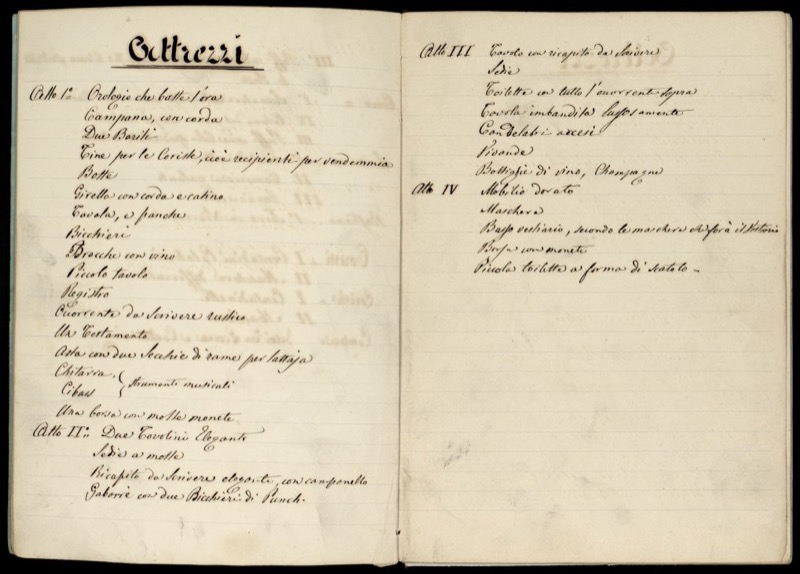 Attrezzi
Atto I.o Orologio che batte l'ora
Campana, con corda
Due Barili
Tine per le Coriste, cioè recipienti per vendemmia
Botte
Girella con corda e catino
Tavola, e panche
Bicchieri
Brocche con vino
Piccolo tavolo
Registro
L'ocorrente da Scrivere rustico
Un Testamento
Asta con due Secchie di rame per lattaja
Chitarra,
strumenti musicali
Una borsa con molte monete
Atto II.o Due Tavolini Eleganti
Sedie a molle
Ricapito da Scrivere elegante, con campanello
Gaborré con due Bicchieri di Punch.
Atto III Tavolo con ricapito da Scrivere
Sedie
Toilette con tutto l'ocorrente sopra
Tavola imbandita lussosamente
Candelabri accesi
Vivande
Bottiglie di vino, Champagne
Atto IV Mobilio dorato
Maschera
Basso vestiario, secondo le maschere che farà il Vestiario
Borsa con monete
Piccola toilette a forma di scatola